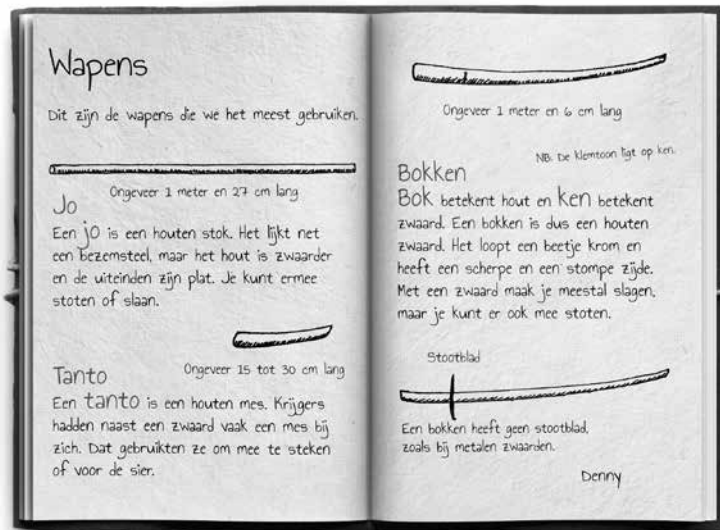 Wapens
Dit zijn de wapens die we het meest gebruiken.
Ongeveer 1 meter en 27 cm lang
Jo
Een jo is een houten stok. Het lijkt net
een bezemsteel, maar het hout is zwaarder
en de uiteinden zijn plat. Je kunt ermee
stoten of slaan.
Ongeveer 15 tot 30 cm lang
Tanto
Een tanto is een houten mes. Krijgers
hadden naast een zwaard vaak een mes bij
zich. Dat gebruikten ze om mee te steken
of voor de sier.
Ongeveer 1 meter en 6 cm lang
NB. De klemtoon ligt op ken.
Bokken
Bok betekent hout en ken betekent
zwaard. Een bokken is dus een houten
zwaard. Het loopt een beetje krom en
heeft een scherpe en een stompe zijde.
Met een zwaard maak je meestal slagen,
maar je kunt er ook mee stoten.
Stootblad
Een bokken heeft geen stootblad,
zoals bij metalen zwaarden.
Denny